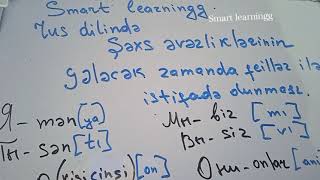 Smart learningg.
Smart learningg
rus dilində
Şəxs əvəzliklərinin
gələcək zamanda feillər ilə
istifadə olunması.
Я - mən [ya] Мы - biz [mı]
Ты - sən [tı] Вы - siz [vı]
[on] Они - onlar [ani]